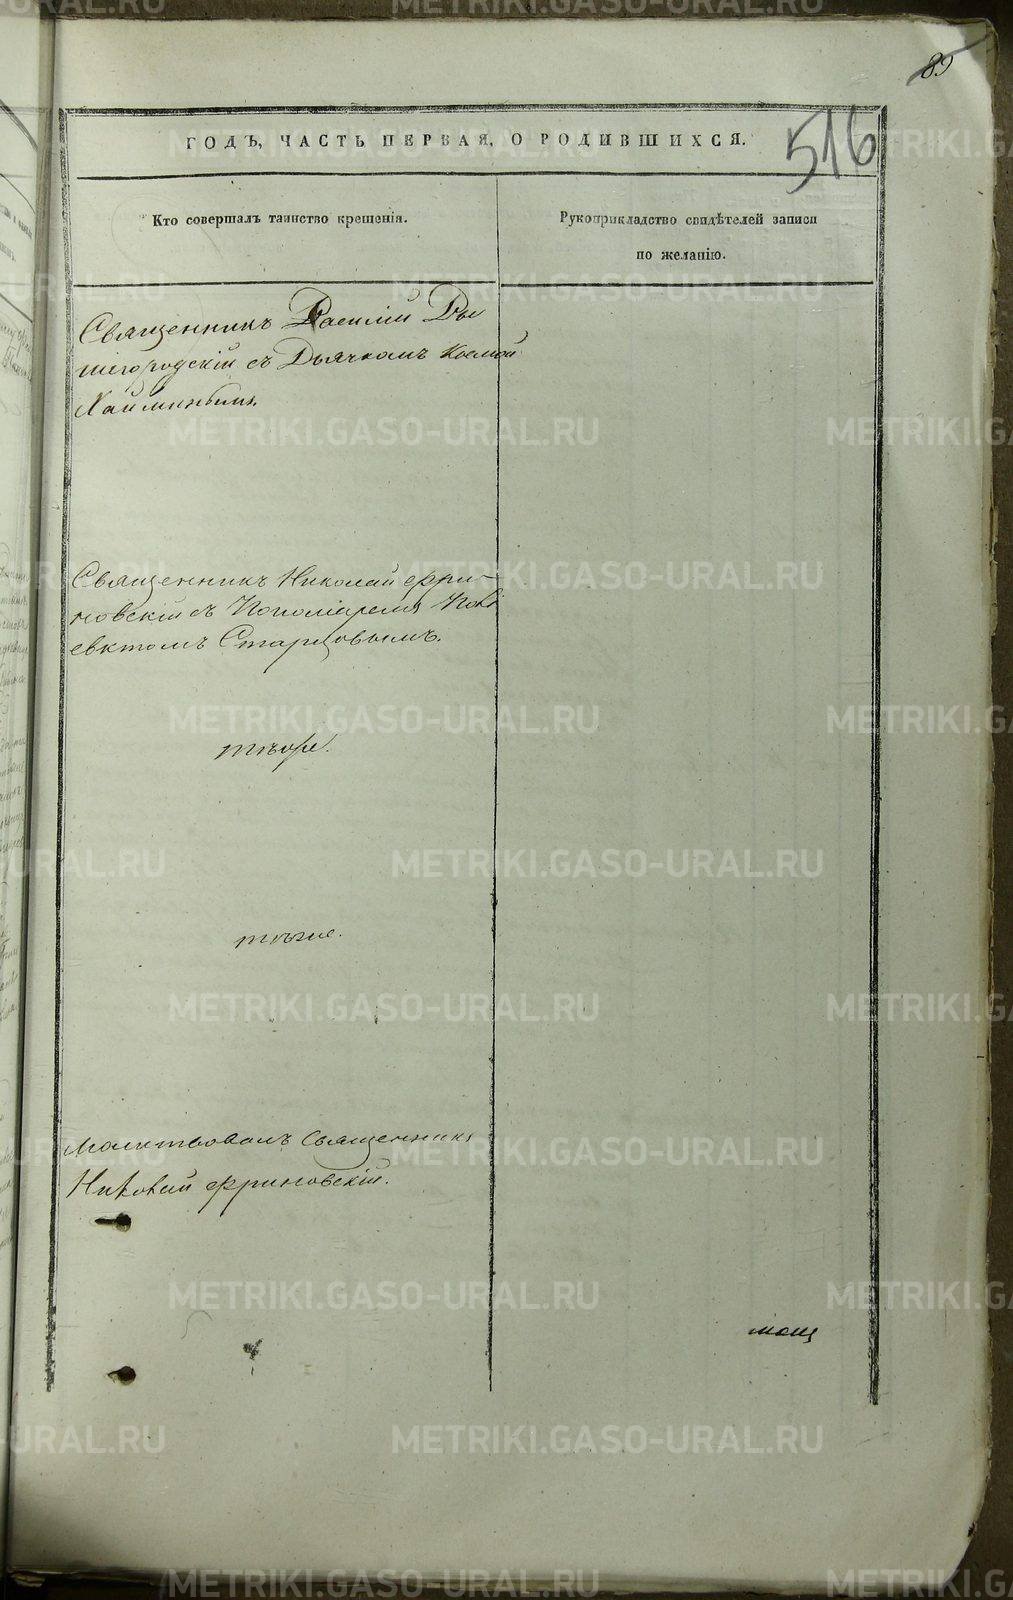 89
516
ГОДЪ, ЧАСТЬ ПЕРВАЯ, О РОДИВШИХСЯ.
Кто совершалъ таинство крещенія.
Рукоприкладство свидѣтелей записи
по желанію.
Священникъ Василій Вы
шегородскій съ Дьячкомъ Космой
Хайминымъ.
Священникъ Николай Фри-
новскій съ Пономаремъ Поли
евктомъ Старцовымъ.
тѣже.
тѣже.
Молитвовалъ Священникъ
Николай Фриновскій.
METRIKI.GASO-URAL.RU